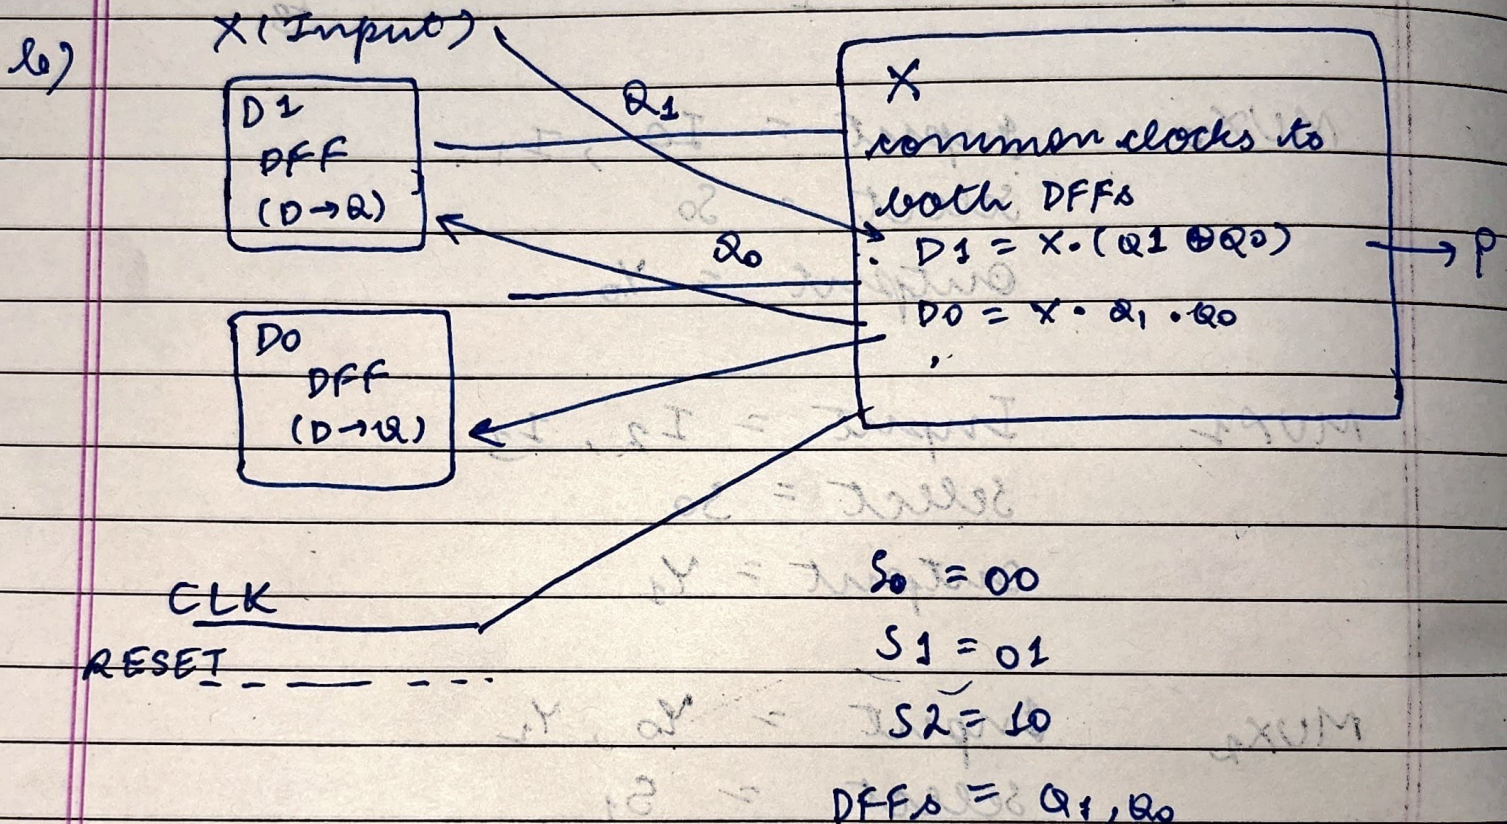 b)
X (Input)
D1
DFF
(D→Q)
Q1
Q0
D0
DFF
(D→Q)
X
common clocks to
both DFFs
D1 = X·(Q1 ⊕ Q0)
D0 = X · Q1 · Q0
P
CLK
RESET
S0 = 00
S1 = 01
S2 = 10
DFFs = Q1, Q0